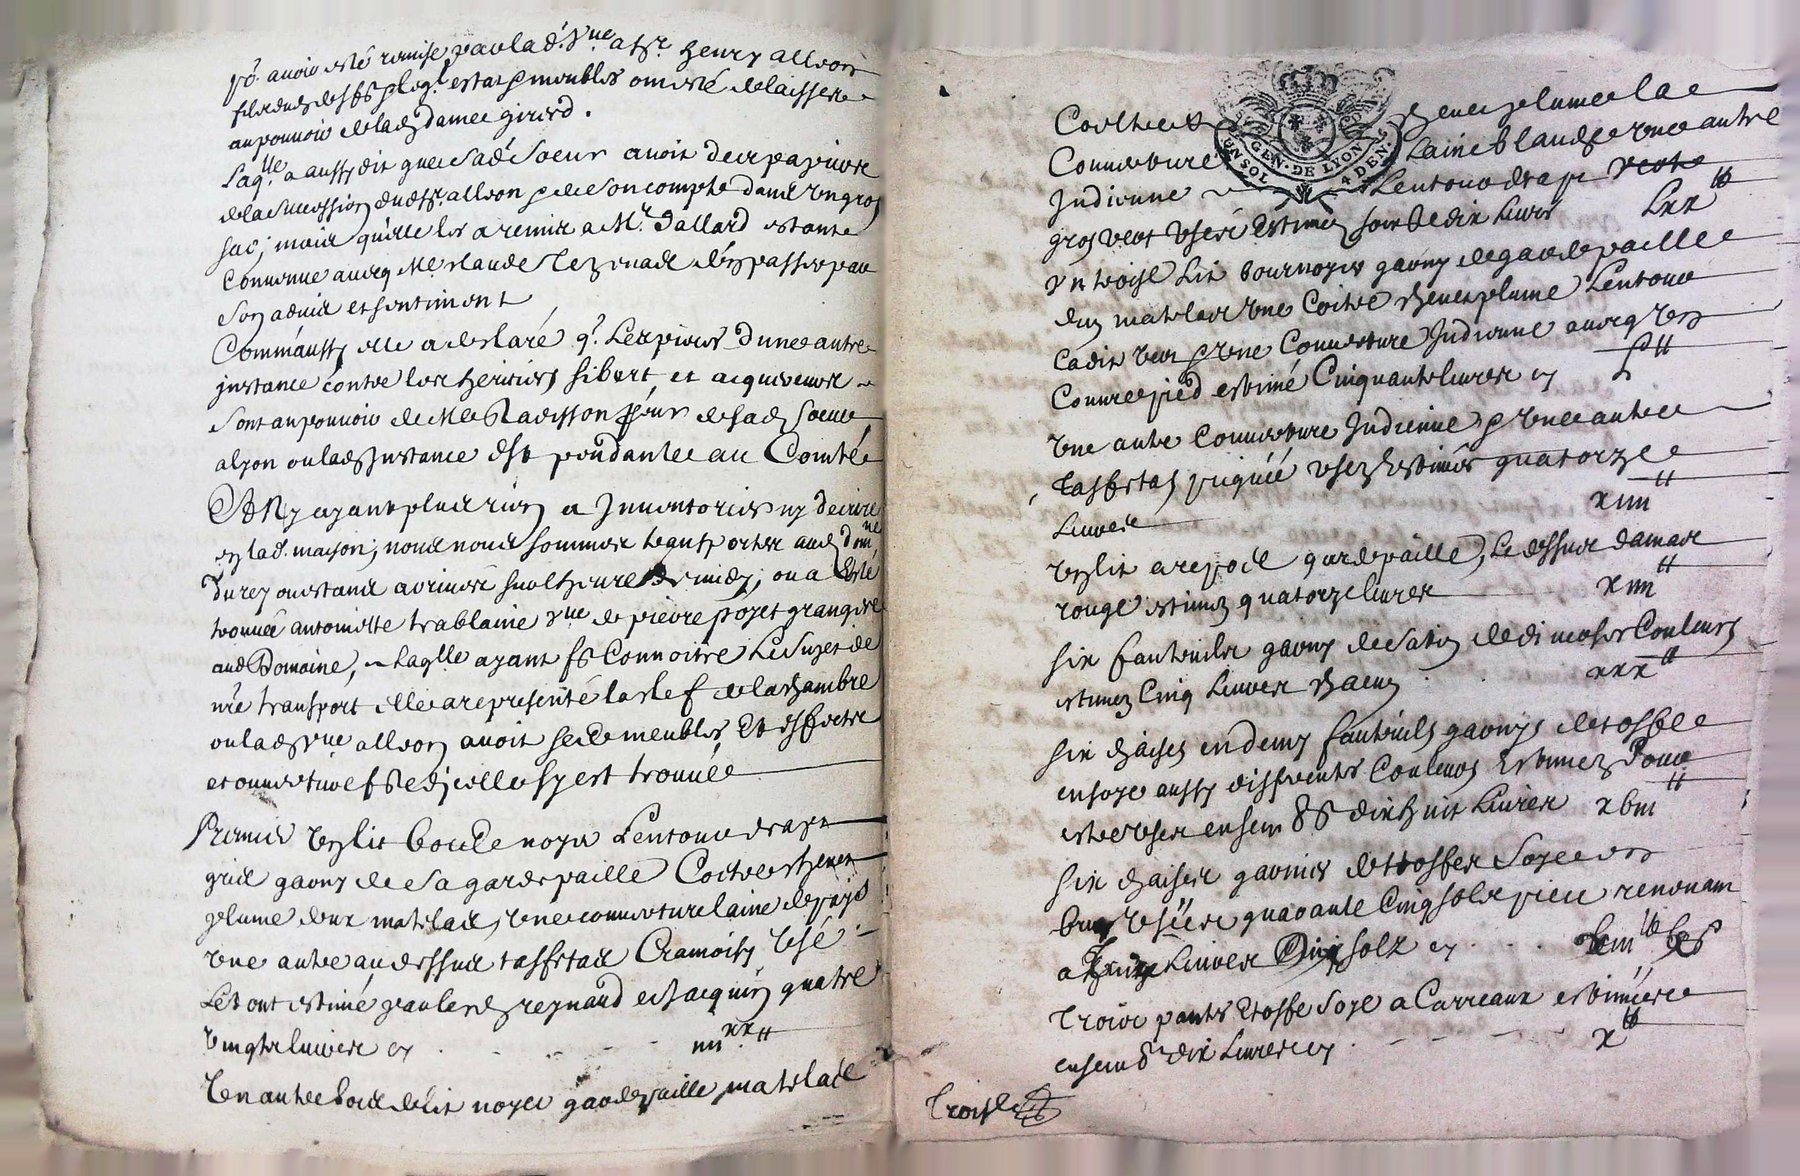 po.r avoir esté remise par lad. v.ne a s.r henry alleon
estat meubles ont esté delaissée
au pouvoir de lad dame girerd.
Laq.lle a aussy dit que sad. soeur avoit des papiers
de la succession dud sr. alleon & de son compte dans un gros
sac; mais qu'elle les a remis a Mr. Dallard estant
convenue avecq Me claude d'en passer par
son advis et sentiment
Comm'aussy elle a declaré q.e Les pieces d'une autre
instance contre les heritiers sibert, et acquereurs
sont au pouvoir de Me Radisson pr.eur de sad. soeur
a lyon ou lad. Instance est pendante au Comté
Et N'y ayant plus rien a Inventorier ny decrire
en lad. maison; nous nous sommes transportes aud. dom.ne
Durey ou estans arrivés sur l'heure de midy; ou a Esté
trouvée antoinette trablaine v.ne de pierre poyet grangere
aud Domaine, Laq.lle ayant fs Connoitre Le Sujet de
n.re transport elle a representé la clef de la chambre
ou lad v.ne alleon avoit ses meubles Et effects
et ouverture fste d'icelle s'y est trouvée
Premier Un lit bois de noyer L'entour drap
gris garny de sa gardepaille Coitre
plume deux matelas, une couverture laine de pays
Une autre au dessus taffetas Cramoisy usé
Le tout estimé par lesd. reynaud et jacquin quatre
vingts livres cy . . . iiii xx ₶
Un autre bois de lit noyer gardepaille matelas
Coitre & plume la
Couverture Laine blanche une autre
Indienne L'entour drap verte
gros vert usée Estimé soixte dix Livres Lxx ₶
GEN. DE LYON
UN SOL 4 DEN.
Un troise Lit bournoyer garny de gardepaille
d'un matelas une Coitre plume L'entour
cadis vert & une Couverture Indienne avecq un
Couvrepied estimé Cinquante livres cy L ₶
Une autre Couverture Indienne & une autre
taffetas piquée usez Estimés quatorze
Livres xiiii ₶
Un lit a repos gardepaille, Le dessus damas
rouge estimez quatorze livres xiiii ₶
six fauteuils garny de satin de diverses Couleurs
estimez Cinq Livres chacun xxx ₶
six chaises en demy fauteuils garnys d'etoffe
en soye aussy differentes Couleurs Estimez Pour
estre usées ensem ble dix huit Livres xviii ₶
six chaises garnies d'ettoffes soye
usées quarante Cinq sols piece revenant
a Treize Livres Dix solz cy . . .
Trois pants Etoffe Soye a Carreaux estimées
ensem ble dix Livres cy - - - x ₶